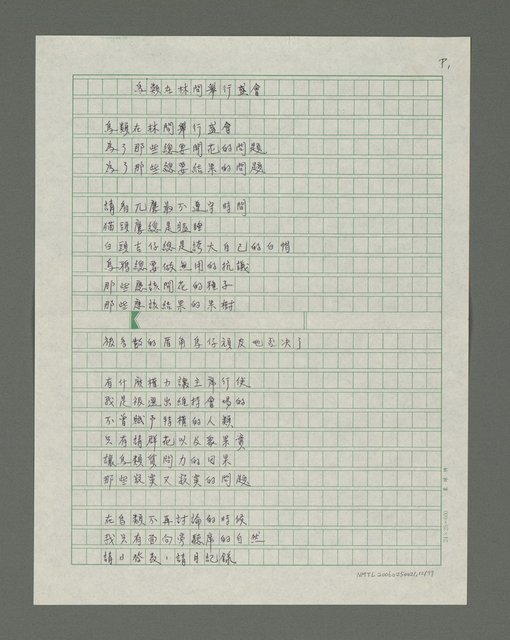 P1
鳥類在林間舉行盛會
鳥類在林間舉行盛會
為了那些總要開花的問題
為了那些總要結果的問題
請看兀鷹最不遵守時間
貓頭鷹總是瞌睡
白頭翁仔總是誇大自己的白帽
烏鴉總要做無用的抗議
那些應該開花的種子
那些應該結果的果樹
被多數的眉角鳥仔頑皮地否決了
有什麼權力讓主席行使
我是被選出維持會場的
不曾賦予特權的人類
只有請群花以及眾果實
讓鳥類質問力的因果
那些寂寞又寂寞的問題
在鳥類不再討論的時候
我只有面向旁聽席的自然
請日發表，請月記錄
24×25=600